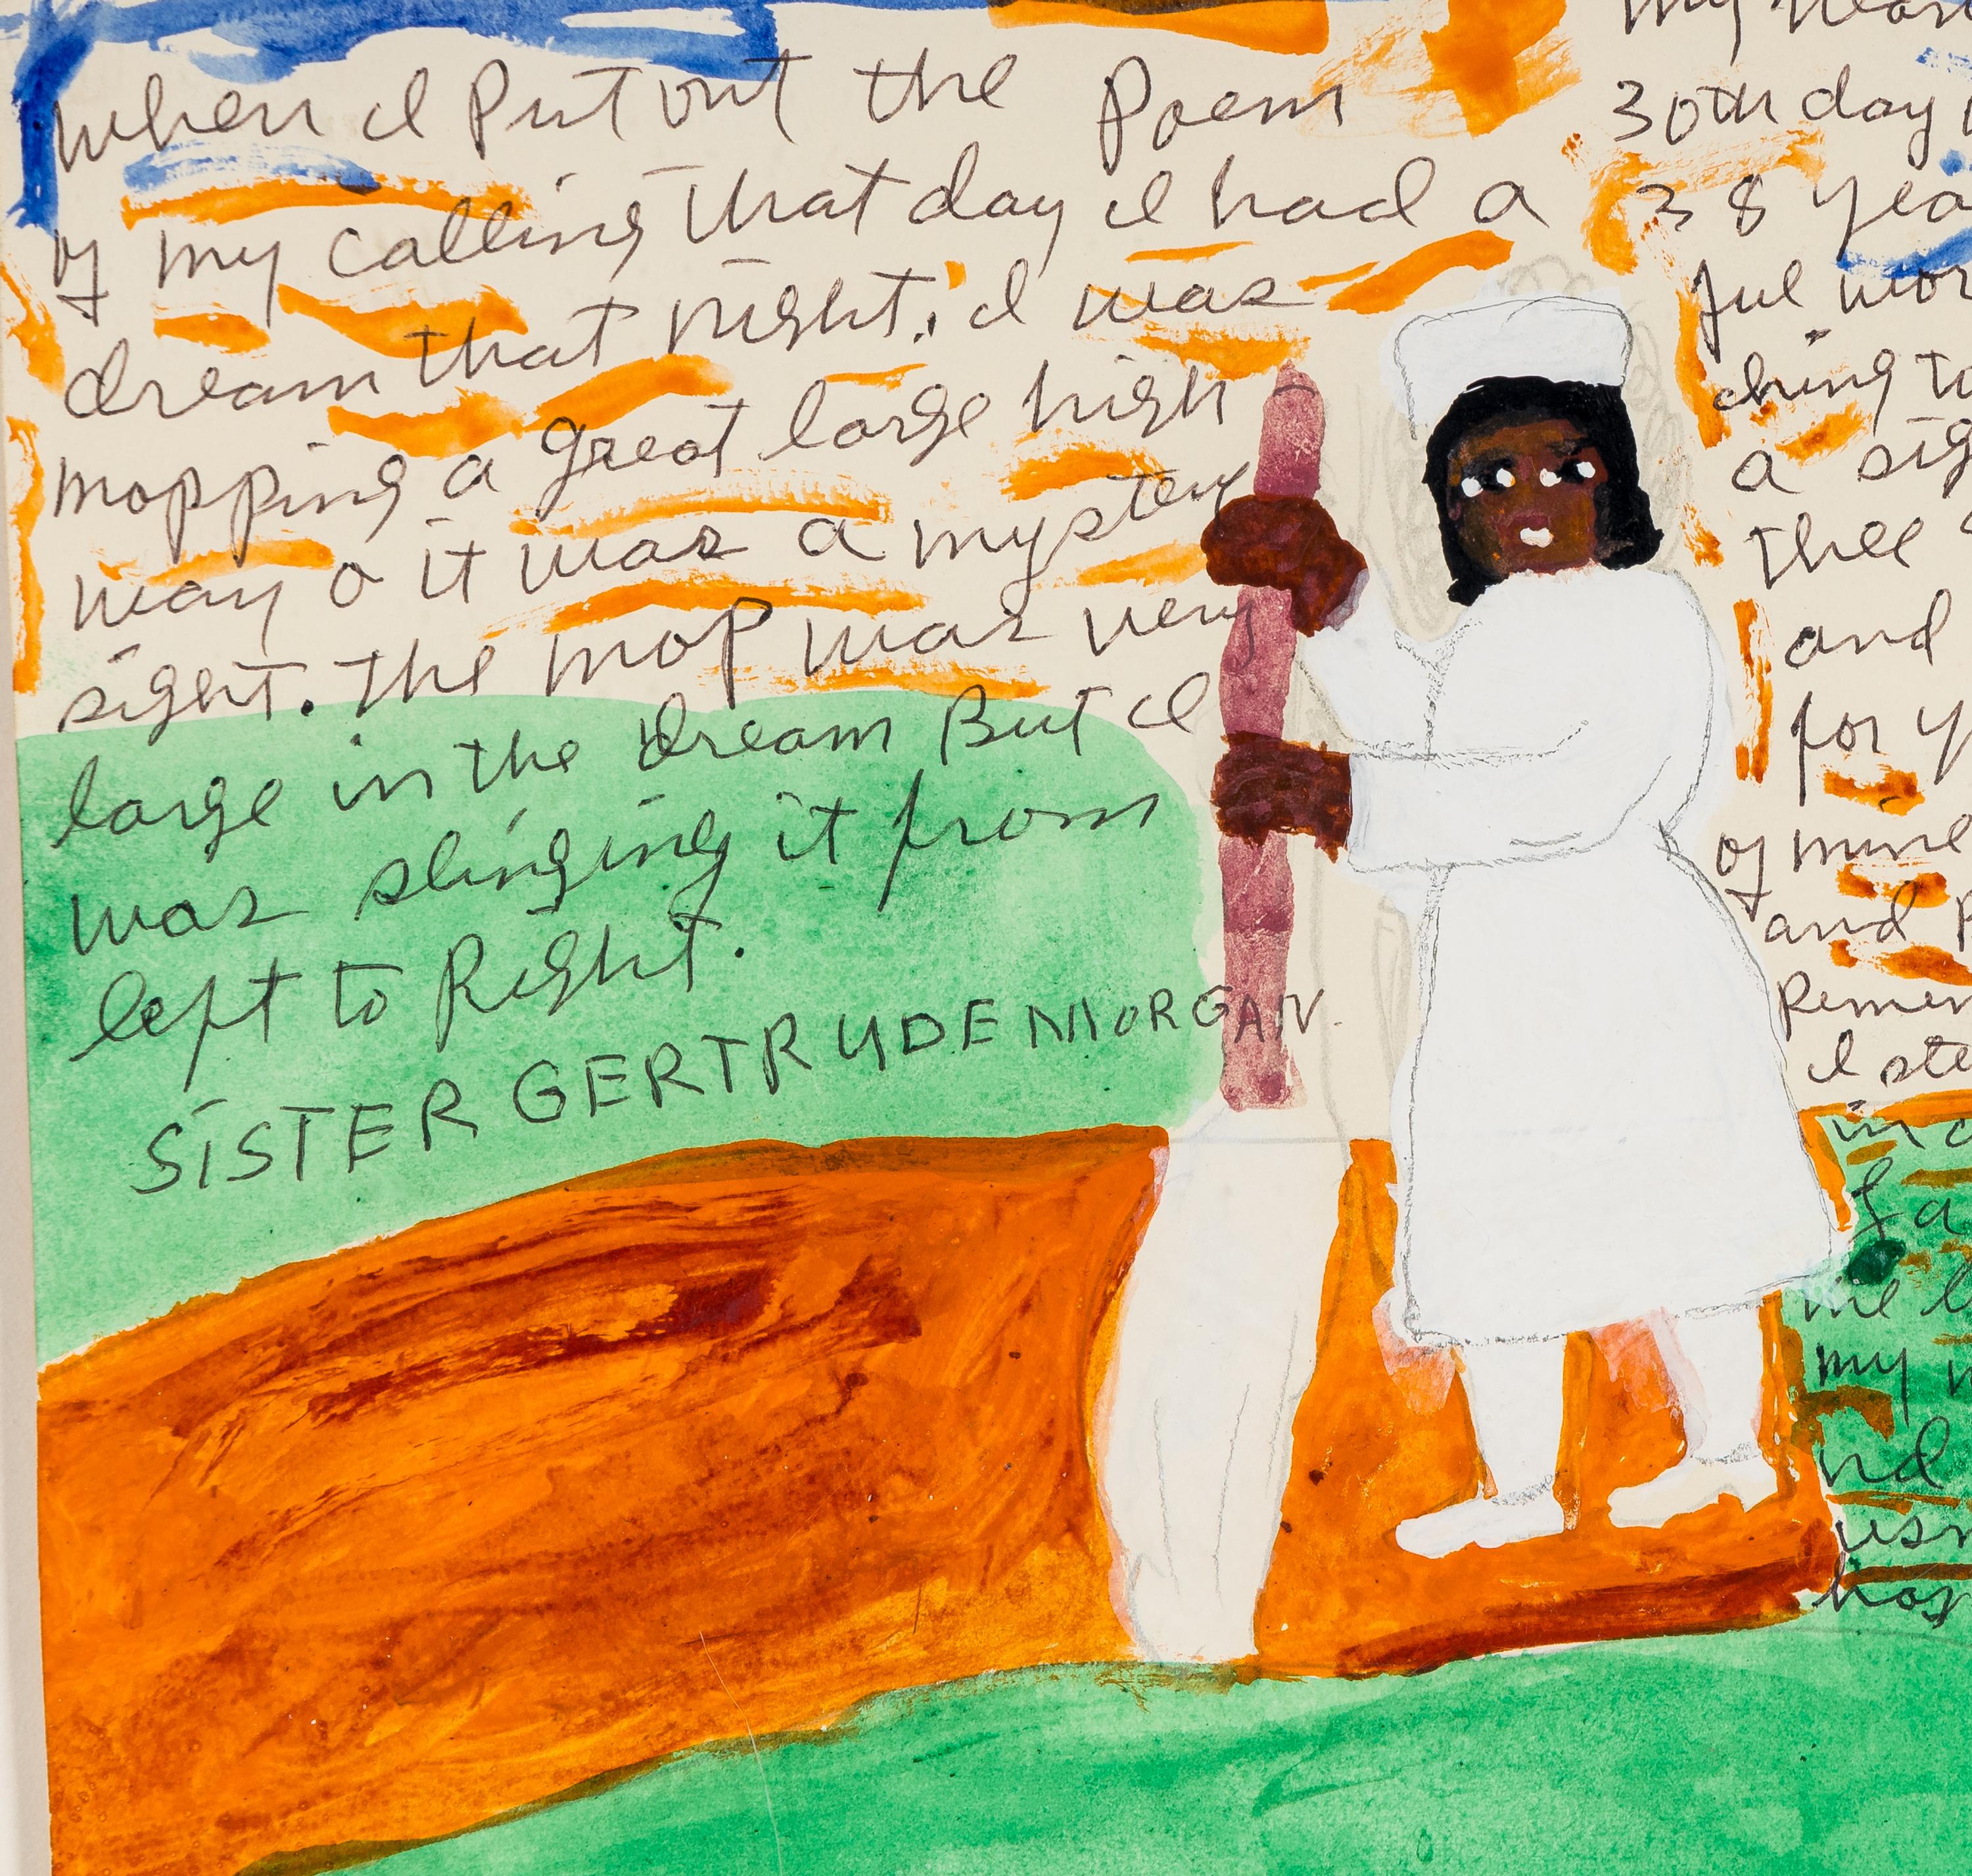 when I Put out the Poem
of my calling that day I had a
dream that night. I was
mopping a great large high
way o it was a mystery
sight. the mop was very
large in the dream But I
was slinging it from
left to Right.
SISTER GERTRUDE MORGAN.
my
30th day
38
ful
ching
a
thee
and
for
of mine
and
I
me
my